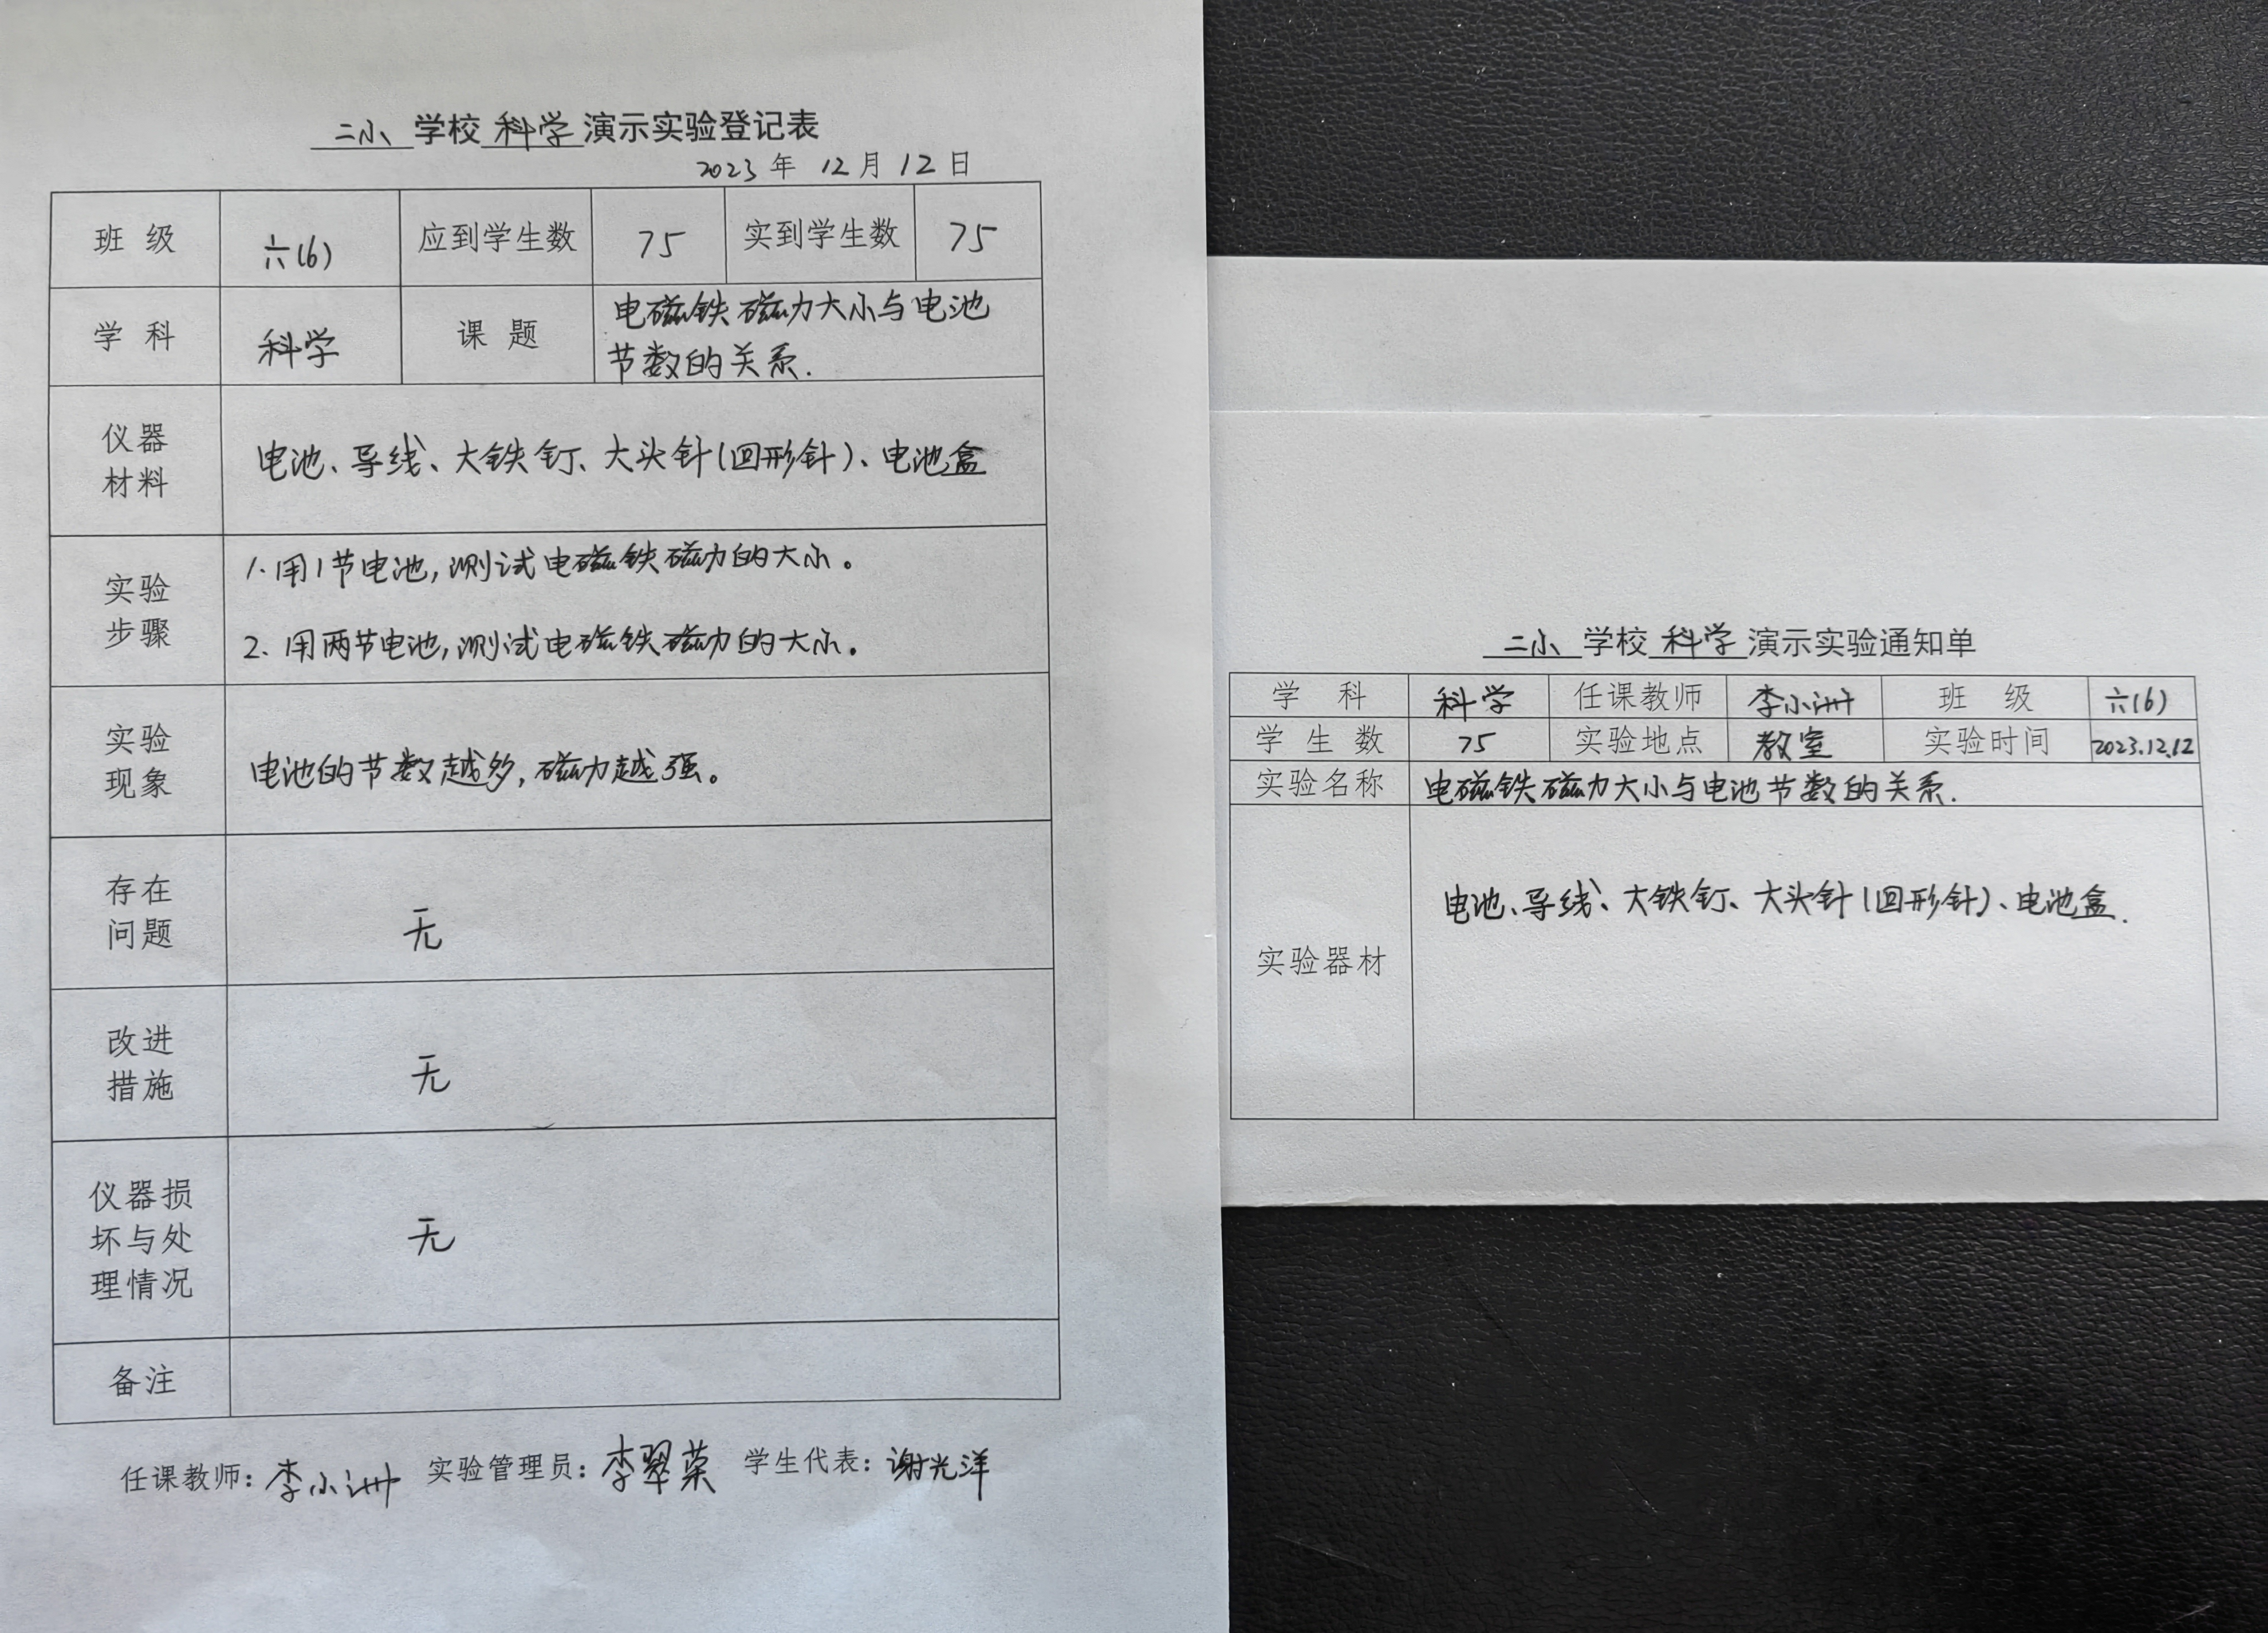 二小 学校 科学 演示实验登记表
2023 年 12 月 12 日
班 级 六(6) 应到学生数 75 实到学生数 75
学 科 科学 课 题 电磁铁磁力大小与电池
节数的关系.
仪器
材料
电池、导线、大铁钉、大头针(回形针)、电池盒
实验
步骤
1. 用1节电池,测试电磁铁磁力的大小。
2. 用两节电池,测试电磁铁磁力的大小。
实验
现象
电池的节数越多,磁力越强。
存在
问题
无
改进
措施
无
仪器损
坏与处
理情况
无
备注
任课教师:李小洲 实验管理员:李翠荣 学生代表:谢光洋
二小 学校 科学 演示实验通知单
学 科 科学 任课教师 李小洲 班 级 六(6)
学 生 数 75 实验地点 教室 实验时间 2023.12.12
实验名称 电磁铁磁力大小与电池节数的关系.
实验器材
电池、导线、大铁钉、大头针(回形针)、电池盒.